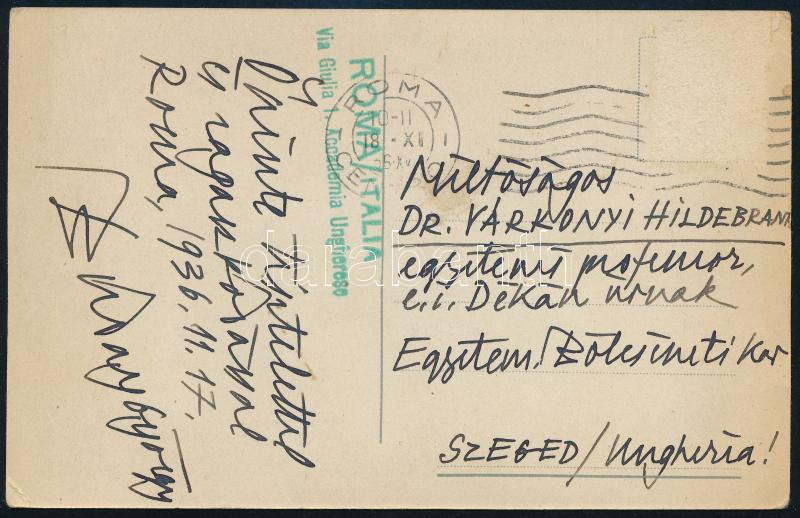 Őszinte tisztelettel
és ragaszkodással
Roma, 1936. 11. 17.
ROMA/ITALIA
Via Giulia 1. Accademia Ungherese
ROMA
10-11
18 · XI
CE
Méltóságos
DR. VÁRKONYI HILDEBRAND
egyetemi professor,
e.i. Dékán úrnak
Egyetem/Bölcsészeti Kar
SZEGED/Ungheria!
darabanth